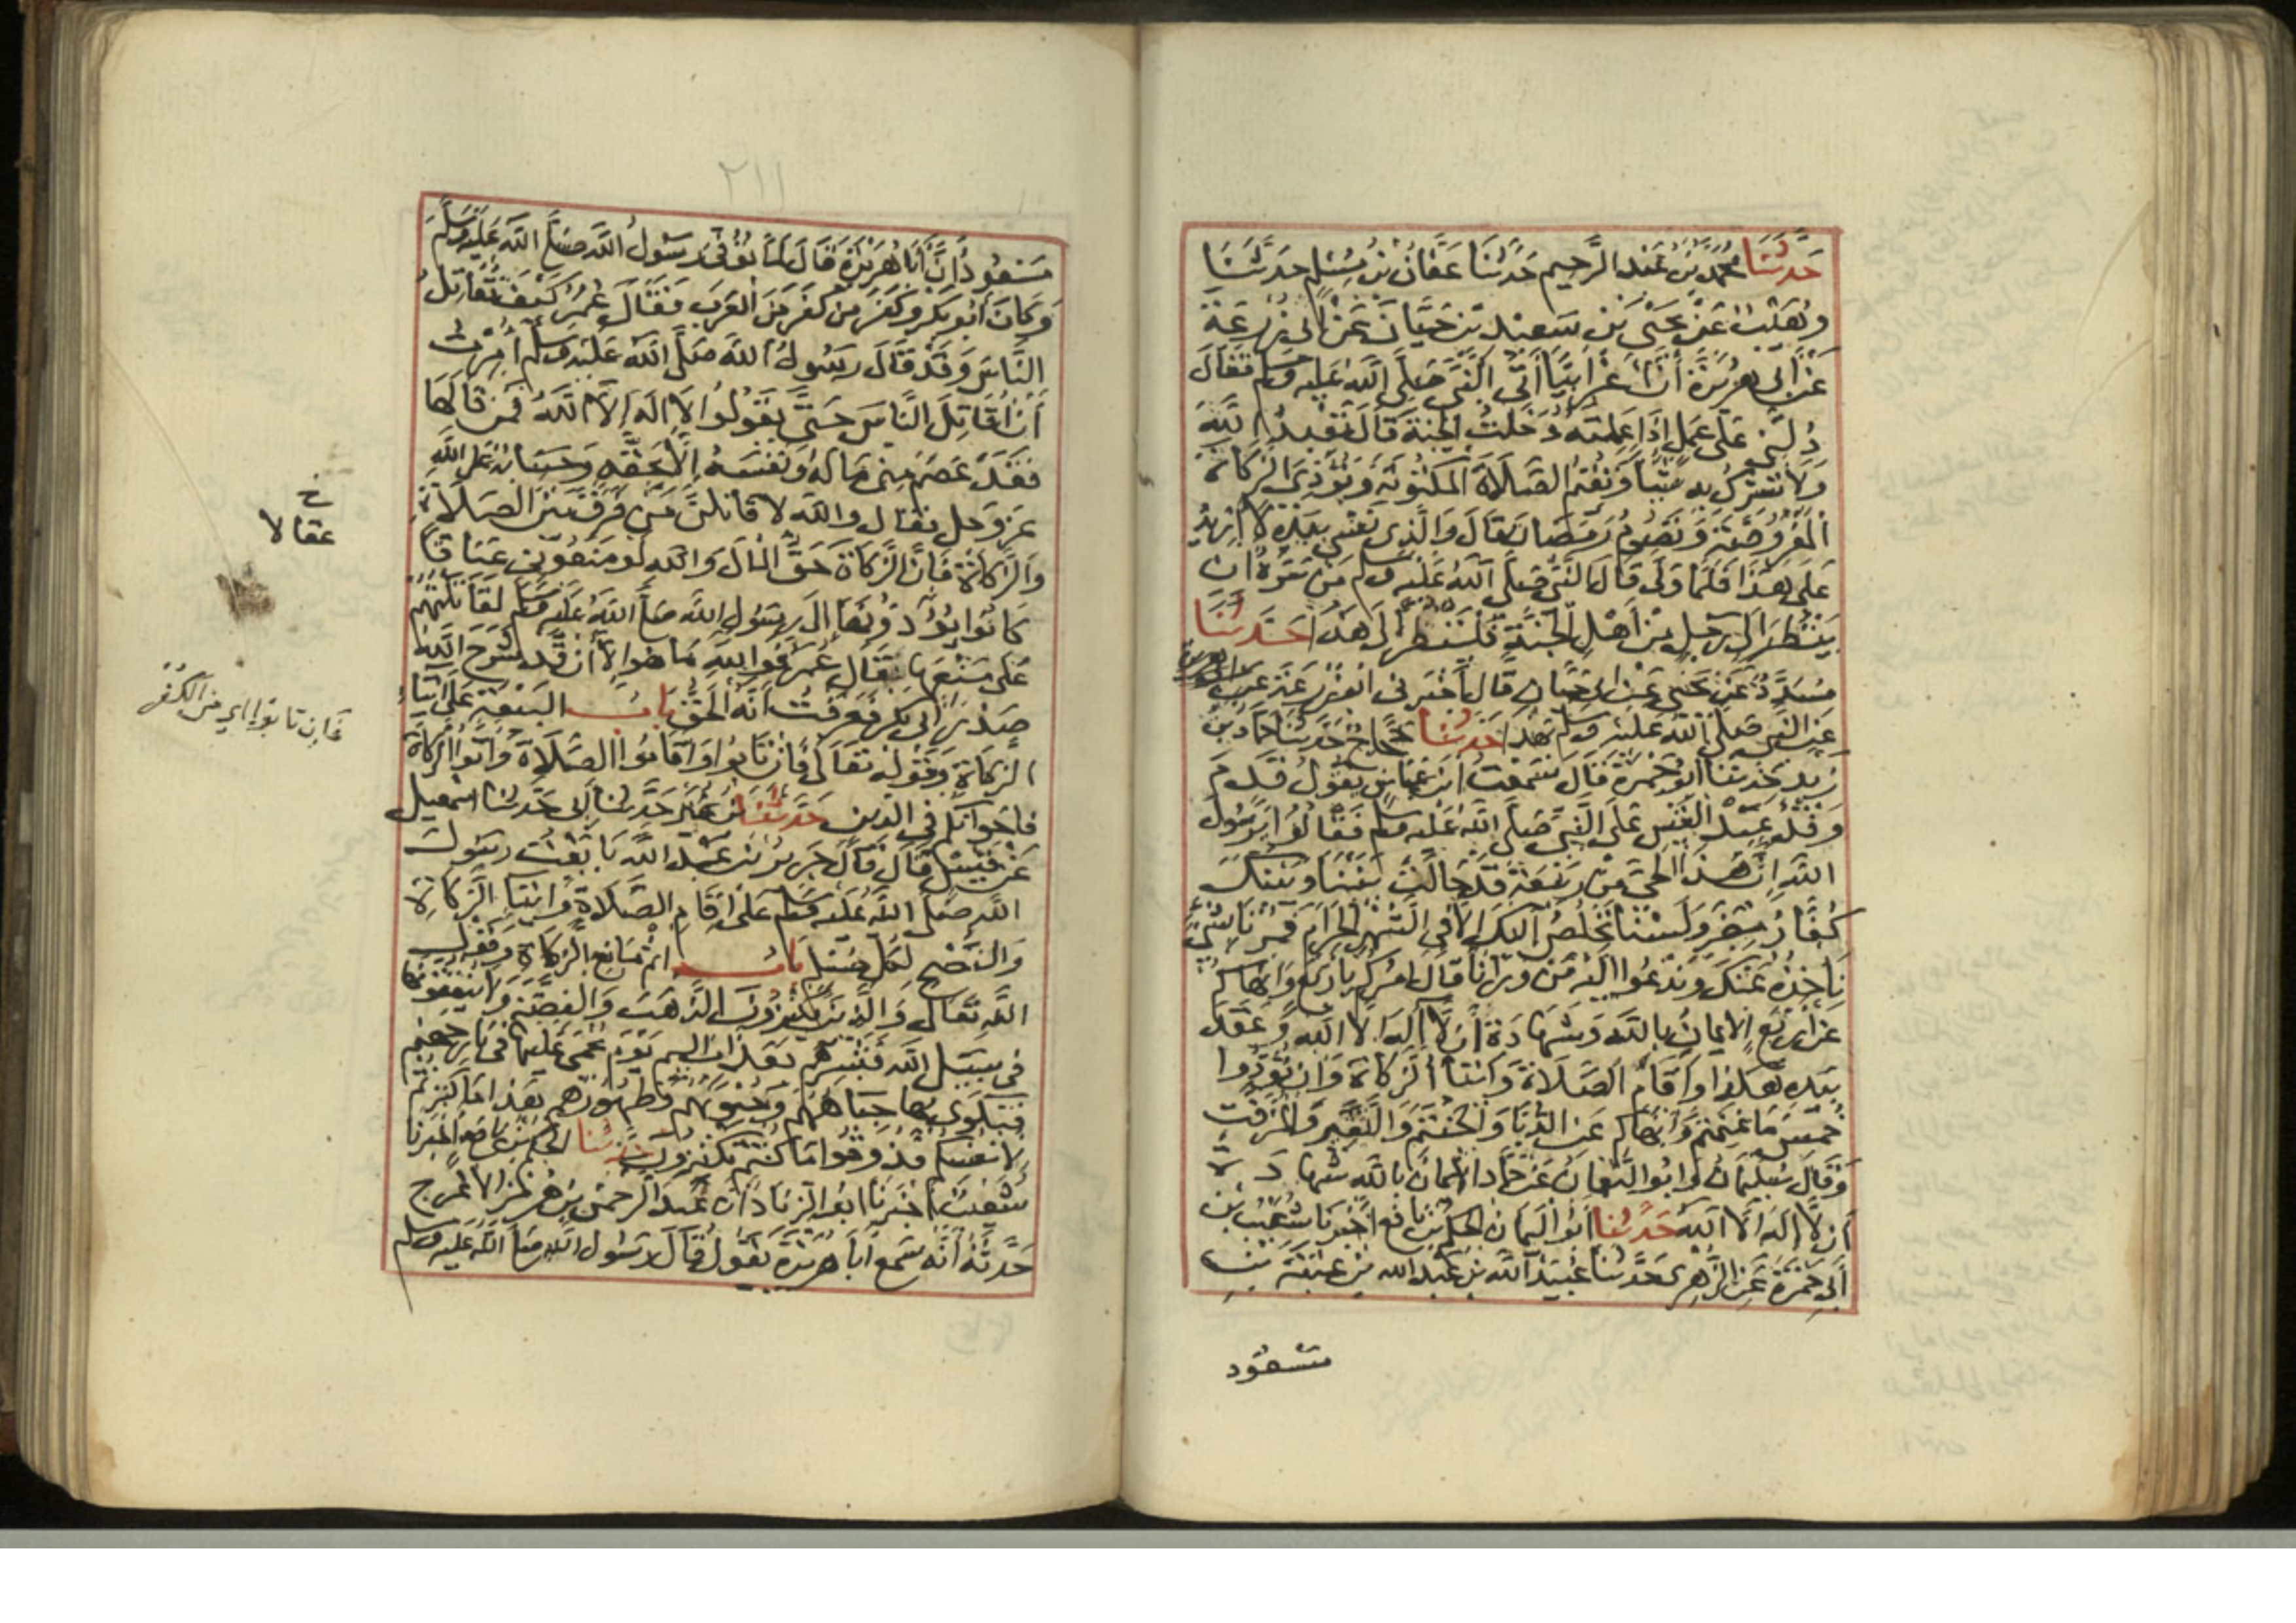 حَدَّثَنَا مُحَمَّدُ بْنُ عَبْدِ الرَّحِيمِ حَدَّثَنَا عَفَّانُ بْنُ مُسْلِمٍ حَدَّثَنَا
وُهَيْبٌ عَنْ يَحْيَى بْنِ سَعِيدِ بْنِ حَيَّانَ عَنْ أَبِي زُرْعَةَ
عَنْ أَبِي هُرَيْرَةَ أَنَّ أَعْرَابِيًّا أَتَى النَّبِيَّ صَلَّى اللَّهُ عَلَيْهِ وَسَلَّمَ فَقَالَ
دُلَّنِي عَلَى عَمَلٍ إِذَا عَمِلْتُهُ دَخَلْتُ الجَنَّةَ قَالَ تَعْبُدُ اللَّهَ
وَلَا تُشْرِكُ بِهِ شَيْئًا وَتُقِيمُ الصَّلَاةَ الْمَكْتُوبَةَ وَتُؤَدِّي الزَّكَاةَ
الْمَفْرُوضَةَ وَتَصُومُ رَمَضَانَ قَالَ وَالَّذِي نَفْسِي بِيَدِهِ لَا أَزِيدُ
عَلَى هَذَا فَلَمَّا وَلَّى قَالَ النَّبِيُّ صَلَّى اللَّهُ عَلَيْهِ وَسَلَّمَ مَنْ سَرَّهُ أَنْ
يَنْظُرَ إِلَى رَجُلٍ مِنْ أَهْلِ الْجَنَّةِ فَلْيَنْظُرْ إِلَى هَذَا حَدَّثَنَا
مُسَدَّدٌ عَنْ يَحْيَى عَنْ أَبِي حَيَّانَ قَالَ أَخْبَرَنِي أَبُو زُرْعَةَ
عَنِ النَّبِيِّ صَلَّى اللَّهُ عَلَيْهِ وَسَلَّمَ بِهَذَا حَدَّثَنَا حَجَّاجٌ حَدَّثَنَا حَمَّادُ بْنُ
زَيْدٍ حَدَّثَنَا أَبُو جَمْرَةَ قَالَ سَمِعْتُ ابْنَ عَبَّاسٍ يَقُولُ قَدِمَ
وَفْدُ عَبْدِ الْقَيْسِ عَلَى النَّبِيِّ صَلَّى اللَّهُ عَلَيْهِ وَسَلَّمَ فَقَالُوا يَا رَسُولَ
اللَّهِ إِنَّ هَذَا الْحَيَّ مِنْ رَبِيعَةَ قَدْ حَالَتْ بَيْنَنَا وَبَيْنَكَ
كُفَّارُ مُضَرَ وَلَسْنَا نَخْلُصُ إِلَيْكَ إِلَّا فِي الشَّهْرِ الْحَرَامِ فَمُرْنَا بِشَيْءٍ
نَأْخُذُهُ عَنْكَ وَنَدْعُوا إِلَيْهِ مَنْ وَرَاءَنَا قَالَ آمُرُكُمْ بِأَرْبَعٍ وَأَنْهَاكُمْ
عَنْ أَرْبَعٍ الْإِيمَانُ بِاللَّهِ وَشَهَادَةُ أَنْ لَا إِلَهَ إِلَّا اللَّهُ وَعَقَدَ
بِيَدِهِ هَكَذَا وَإِقَامُ الصَّلَاةِ وَإِيتَاءُ الزَّكَاةِ وَأَنْ تُؤَدُّوا
خُمُسَ مَا غَنِمْتُمْ وَأَنْهَاكُمْ عَنِ الدُّبَّاءِ وَالْحَنْتَمِ وَالنَّقِيرِ وَالْمُزَفَّتِ
وَقَالَ سُلَيْمَانُ وَأَبُو النُّعْمَانِ عَنْ حَمَّادٍ الْإِيمَانِ بِاللَّهِ شَهَادَةِ
أَنْ لَا إِلَهَ إِلَّا اللَّهُ حَدَّثَنَا أَبُو الْيَمَانِ الْحَكَمُ بْنُ نَافِعٍ أَخْبَرَنَا شُعَيْبُ بْنُ
أَبِي حَمْزَةَ عَنِ الزُّهْرِيِّ حَدَّثَنَا عُبَيْدُ اللَّهِ بْنُ عَبْدِ اللَّهِ بْنِ عُتْبَةَ بْنِ
مَسْعُود
٢١١
مَسْعُودٍ أَنَّ أَبَا هُرَيْرَةَ قَالَ لَمَّا تُوُفِّيَ رَسُولُ اللَّهِ صَلَّى اللَّهُ عَلَيْهِ وَسَلَّمَ
وَكَانَ أَبُو بَكْرٍ وَكَفَرَ مَنْ كَفَرَ مِنَ الْعَرَبِ فَقَالَ عُمَرُ كَيْفَ تُقَاتِلُ
النَّاسَ وَقَدْ قَالَ رَسُولُ اللَّهِ صَلَّى اللَّهُ عَلَيْهِ وَسَلَّمَ أُمِرْتُ
أَنْ أُقَاتِلَ النَّاسَ حَتَّى يَقُولُوا لَا إِلَهَ إِلَّا اللَّهُ فَمَنْ قَالَهَا
فَقَدْ عَصَمَ مِنِّي مَالَهُ وَنَفْسَهُ إِلَّا بِحَقِّهِ وَحِسَابُهُ عَلَى اللَّهِ
عَزَّ وَجَلَّ فَقَالَ وَاللَّهِ لَأُقَاتِلَنَّ مَنْ فَرَّقَ بَيْنَ الصَّلَاةِ
وَالزَّكَاةِ فَإِنَّ الزَّكَاةَ حَقُّ الْمَالِ وَاللَّهِ لَوْ مَنَعُونِي عَنَاقًا
كَانُوا يُؤَدُّونَهَا إِلَى رَسُولِ اللَّهِ صَلَّى اللَّهُ عَلَيْهِ وَسَلَّمَ لَقَاتَلْتُهُمْ
عَلَى مَنْعِهَا فَقَالَ عُمَرُ فَوَاللَّهِ مَا هُوَ إِلَّا أَنْ قَدْ شَرَحَ اللَّهُ
صَدْرَ أَبِي بَكْرٍ فَعَرَفْتُ أَنَّهُ الْحَقُّ بَابُ الْبَيْعَةِ عَلَى إِيتَاءِ
الزَّكَاةِ وَقَوْلِهِ تَعَالَى فَإِنْ تَابُوا وَأَقَامُوا الصَّلَاةَ وَآتَوُا الزَّكَاةَ
فَإِخْوَانُكُمْ فِي الدِّينِ حَدَّثَنَا ابْنُ نُمَيْرٍ حَدَّثَنَا أَبِي حَدَّثَنَا إِسْمَعِيلُ
عَنْ قَيْسٍ قَالَ قَالَ جَرِيرُ بْنُ عَبْدِ اللَّهِ بَايَعْتُ رَسُولَ
اللَّهِ صَلَّى اللَّهُ عَلَيْهِ وَسَلَّمَ عَلَى إِقَامِ الصَّلَاةِ وَإِيتَاءِ الزَّكَاةِ
وَالنُّصْحِ لِكُلِّ مُسْلِمٍ بَابُ إِثْمِ مَانِعِ الزَّكَاةِ وَقَوْلِ
اللَّهِ تَعَالَى وَالَّذِينَ يَكْنِزُونَ الذَّهَبَ وَالْفِضَّةَ وَلَا يُنْفِقُونَهَا
فِي سَبِيلِ اللَّهِ فَبَشِّرْهُمْ بِعَذَابٍ أَلِيمٍ يَوْمَ يُحْمَى عَلَيْهَا فِي نَارِ جَهَنَّمَ
فَتُكْوَى بِهَا جِبَاهُهُمْ وَجُنُوبُهُمْ وَظُهُورُهُمْ هَذَا مَا كَنَزْتُمْ
لِأَنْفُسِكُمْ فَذُوقُوا مَا كُنْتُمْ تَكْنِزُونَ حَدَّثَنَا الْحَكَمُ بْنُ نَافِعٍ أَخْبَرَنَا
شُعَيْبٌ أَخْبَرَنَا أَبُو الزِّنَادِ أَنَّ عَبْدَ الرَّحْمَنِ بْنَ هُرْمُزَ الْأَعْرَجَ
حَدَّثَهُ أَنَّهُ سَمِعَ أَبَا هُرَيْرَةَ يَقُولُ قَالَ رَسُولُ اللَّهِ صَلَّى اللَّهُ عَلَيْهِ وَسَلَّمَ
خ
عقالا
فإن تابوا اي من الكفر